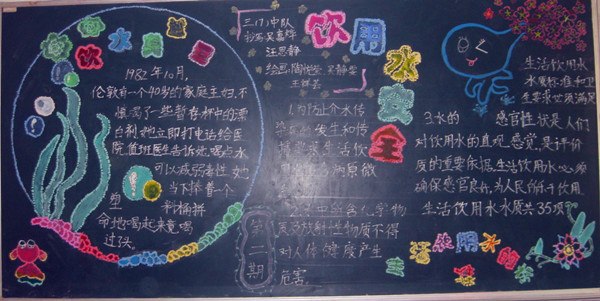 饮水
1982年10月,
伦敦有一个40岁的家庭主妇,不
慎喝了一些暂存杯中的漂
白剂,她立即打电话给医
院,值班医生告诉她:喝点水
可以减弱毒性,她
当下捧着一个
塑料桶拼
命地喝起来,竟喝
过了头
三(7)中队
汪思静
绘画:
饮用水
安全
1.防止介水传
染病的发生和传
播,要求生活饮
用水不含病原微
2.水中所含化学物
质及放射性物质不得
对人体健康产生
危害,
第二期
3.水的感官性状是人们
对饮用水的直观感觉,是评价
水质的重要依据,生活饮用水必须
确保感官良好,为人民所乐于饮用
生活饮用水水质共35项
生活饮用水
水质标准和卫
生要求必须满足
生活饮用水的